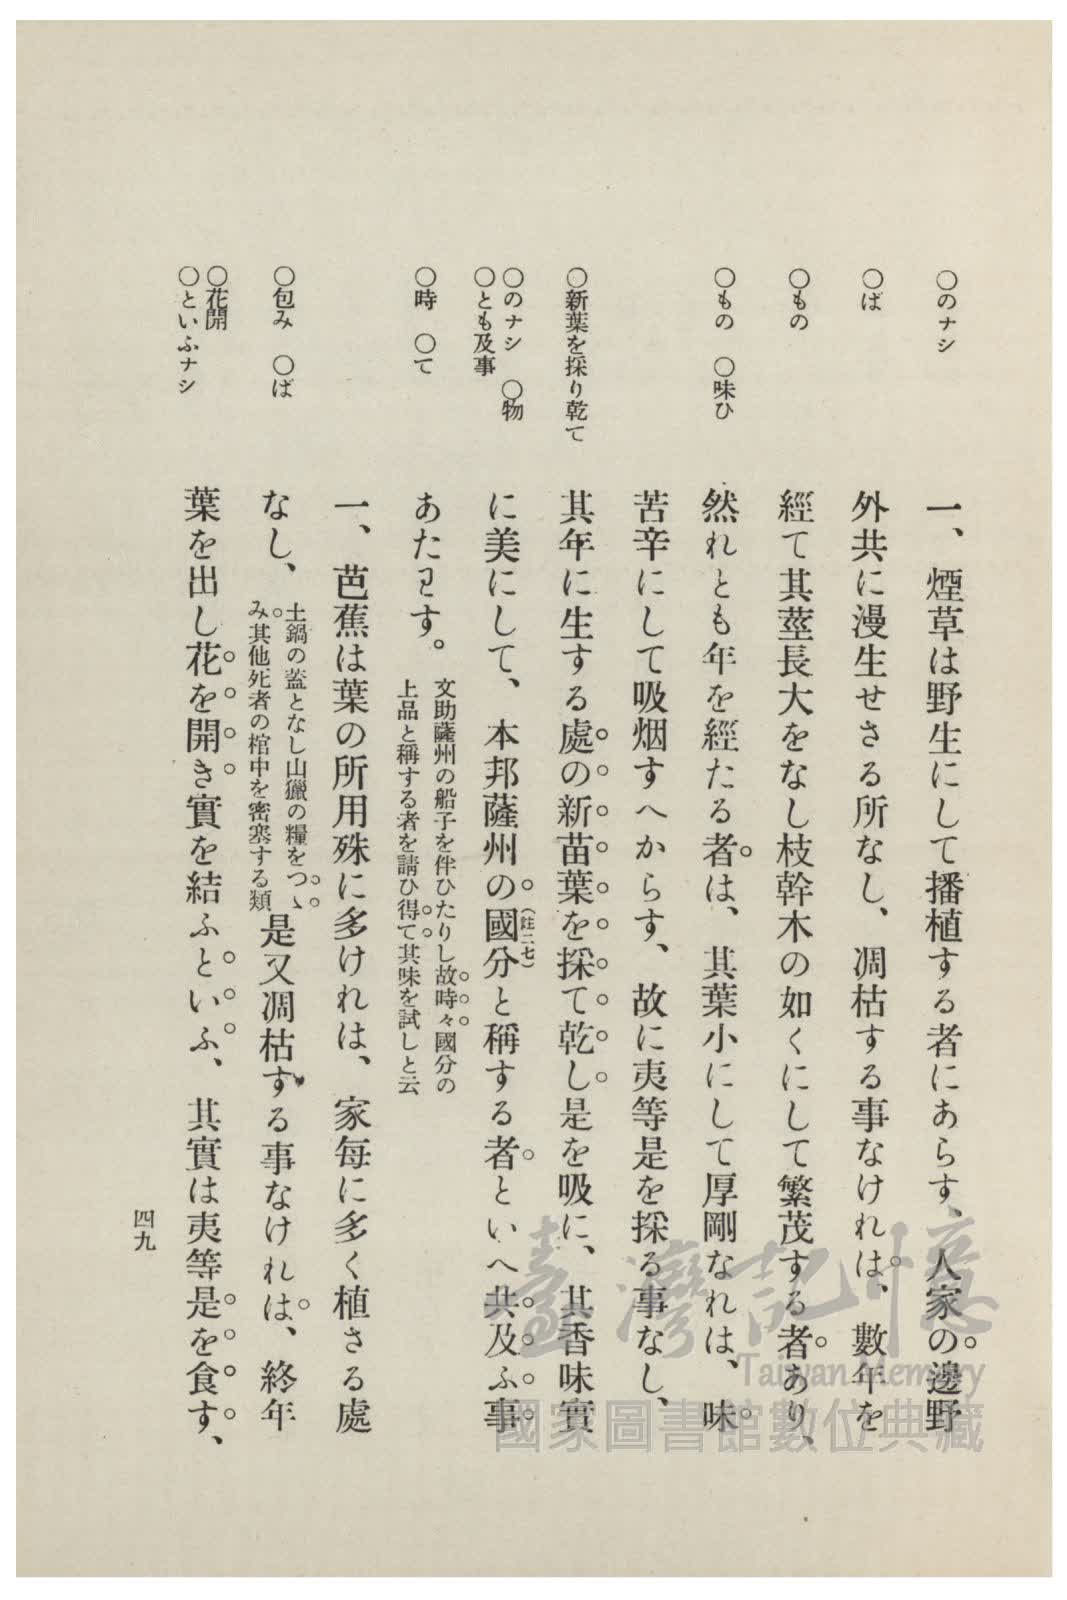 〇のナシ
〇ば
〇もの
〇もの　〇味ひ
〇新葉を採り乾て
〇のナシ　〇物
〇とも及事
〇時　〇て
〇包み　〇ば
〇花開
〇といふナシ
一、煙草は野生にして播植する者にあらす、人家の邊野
外共に漫生せさる所なし、凋枯する事なけれは、數年を
經て其莖長大をなし枝幹木の如くにして繁茂する者あり、
然れとも年を經たる者は、其葉小にして厚剛なれは、味
苦辛にして吸烟すへからす、故に夷等是を採る事なし、
其年に生する處の新苗葉を採て乾し是を吸に、其香味實
に美にして、本邦薩州の國分（註二七）と稱する者といへ共及ふ事
あたハす。
文助薩州の船子を伴ひたりし故時々國分の
上品と稱する者を請ひ得て其味を試しと云
一、芭蕉は葉の所用殊に多けれは、家每に多く植さる處
なし、
土鍋の蓋となし山獵の糧をつゝ
み其他死者の棺中を密塞する類
是又凋枯する事なけれは、終年
葉を出し花を開き實を結ふといふ、其實は夷等是を食す、
四九
臺灣記憶
Taiwan Memory
國家圖書館數位典藏